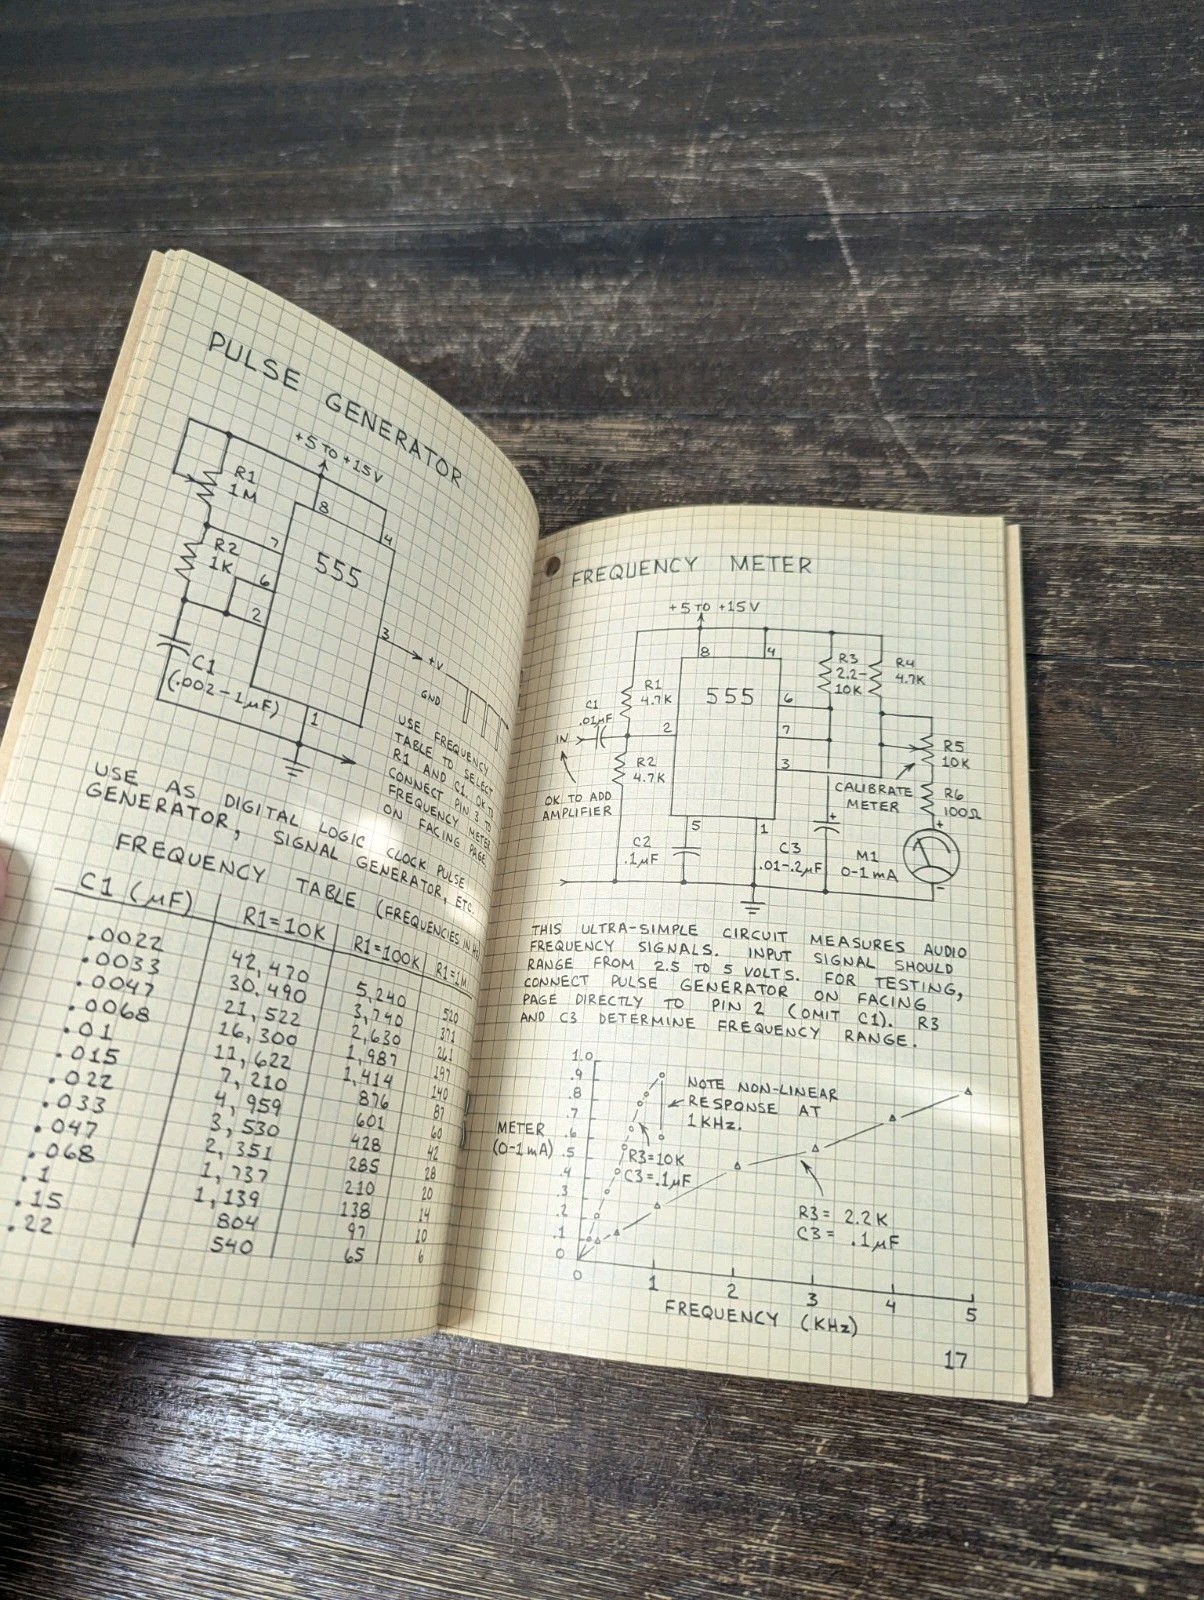 PULSE GENERATOR
+5 TO +15V
R1
1M
8
4
7
555
R2
1K
6
2
3
+V
GND
C1
(.002-1µF)
1
USE FREQUENCY
TABLE TO SELECT
R1 AND C1. OK TO
CONNECT PIN 3 TO
FREQUENCY METER
ON FACING PAGE
USE AS DIGITAL LOGIC CLOCK PULSE
GENERATOR, SIGNAL GENERATOR, ETC.
FREQUENCY TABLE (FREQUENCIES IN Hz)
C1 (µF) R1=10K R1=100K R1=1M
.0022 42,470 5,240 520
.0033 30,490 3,740 371
.0047 21,522 2,630 261
.0068 16,300 1,987 197
.01 11,622 1,414 140
.015 7,210 876 87
.022 4,959 601 60
.033 3,530 428 42
.047 2,351 285 28
.068 1,737 210 20
.1 1,139 138 14
.15 804 97 10
.22 540 65 6
FREQUENCY METER
+5 TO +15V
8
4
R3
2.2-
10K
R4
4.7K
R1
4.7K
555
6
C1
.01µF
IN
2
7
R2
4.7K
3
R5
10K
OK TO ADD
AMPLIFIER
CALIBRATE
METER
R6
100Ω
+
+
5
1
C2
.1µF
C3
.01-.2µF
M1
0-1mA
-
THIS ULTRA-SIMPLE CIRCUIT MEASURES AUDIO
FREQUENCY SIGNALS. INPUT SIGNAL SHOULD
RANGE FROM 2.5 TO 5 VOLTS. FOR TESTING,
CONNECT PULSE GENERATOR ON FACING
PAGE DIRECTLY TO PIN 2 (OMIT C1). R3
AND C3 DETERMINE FREQUENCY RANGE.
1.0
.9
.8
.7
.6
.5
.4
.3
.2
.1
0
METER
(0-1mA)
NOTE NON-LINEAR
RESPONSE AT
1KHz.
R3=10K
C3=.1µF
R3= 2.2K
C3= .1µF
0 1 2 3 4 5
FREQUENCY (KHz)
17